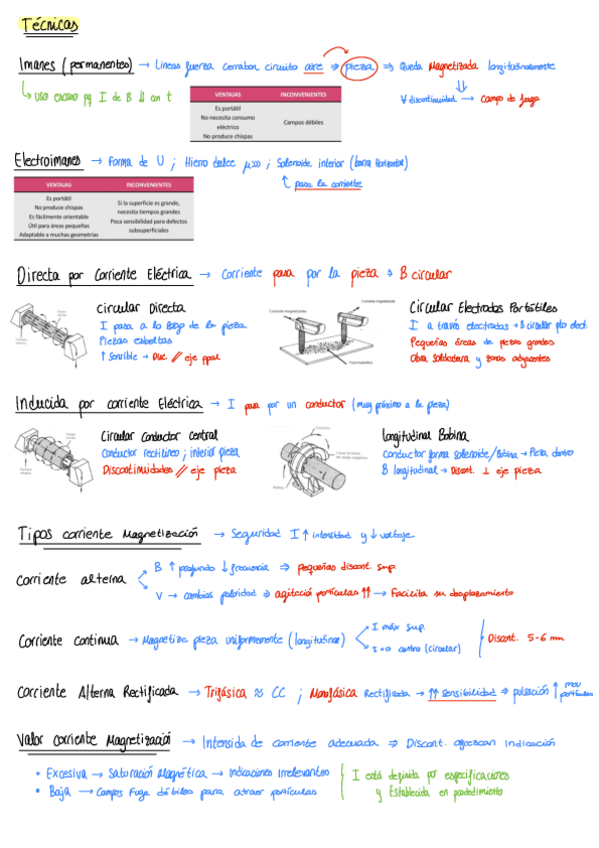 Técnicas
Imanes (permanentes) → Lineas fuerza cerraban circuito aire ⇒ pieza ⇒ Queda Magnetizada longitudinalmente
↳ uso escaso pq I de B ⇓ con t
∀ discontinuidad → Campo de fuga
VENTAJAS INCONVENIENTES
Es portátil
No necesita consumo eléctrico
No produce chispas
Campos débiles
Electroimanes → Forma de U ; Hierro dulce μ>>0 ; Solenoide interior (barra Horizontal)
pasa la corriente
VENTAJAS INCONVENIENTES
Es portátil
No produce chispas
Es fácilmente orientable
Útil para áreas pequeñas
Adaptable a muchas geometrías
Si la superficie es grande,
necesita tiempos grandes
Poca sensibilidad para defectos
subsuperficiales
Directa por Corriente Eléctrica → Corriente pasa por la pieza → B circular
Circular Directa
I pasa a lo largo de la pieza
Piezas esbeltas
↑ Sensible → Disc // eje ppal
Corriente magnetizante
Corriente magnetizante
Circular Electrodos Portátiles
I a través electrodos → B circular pto elect.
Pequeñas áreas de piezas grandes
Obra soldadura y zonas adyacentes
Inducida por corriente Eléctrica → I pasa por un conductor (muy próximo a la pieza)
Circular conductor central
Conductor rectilineo ; interior pieza
Discontinuidades // eje pieza
Longitudinal Bobina
Conductor forma solenoide/Bobina → Pieza dentro
B longitudinal → Discont. ⊥ eje pieza
Tipos corriente Magnetización → Seguridad I ↑ intensidad y ↓ voltaje
Corriente alterna
B ↑ profundo ↓ frecuencia ⇒ pequeñas discont. sup.
V → cambios polaridad ⇒ agitació partículas ↑↑ → Facilita su desplazamiento
Corriente continua → Magnetiza pieza uniformemente (longitudinal)
I máx sup.
I=0 centro (circular)
Discont. 5-6 mm
Corriente Alterna Rectificada → Trifásica ≈ CC ; Monofásica Rectificada → ↑↑ Sensibilidad ⇒ pulsación ↑ mov partículas
Valor corriente Magnetizació → Intensida de corriente adecuada ⇒ Discont. ofrezcan indicación
• Excesiva → Saturación Magnética → Indicaciones Irrelevantes
• Baja → Campos Fuga débiles para atraer partículas
I está definida por especificaciones
y Establecida en procedimiento